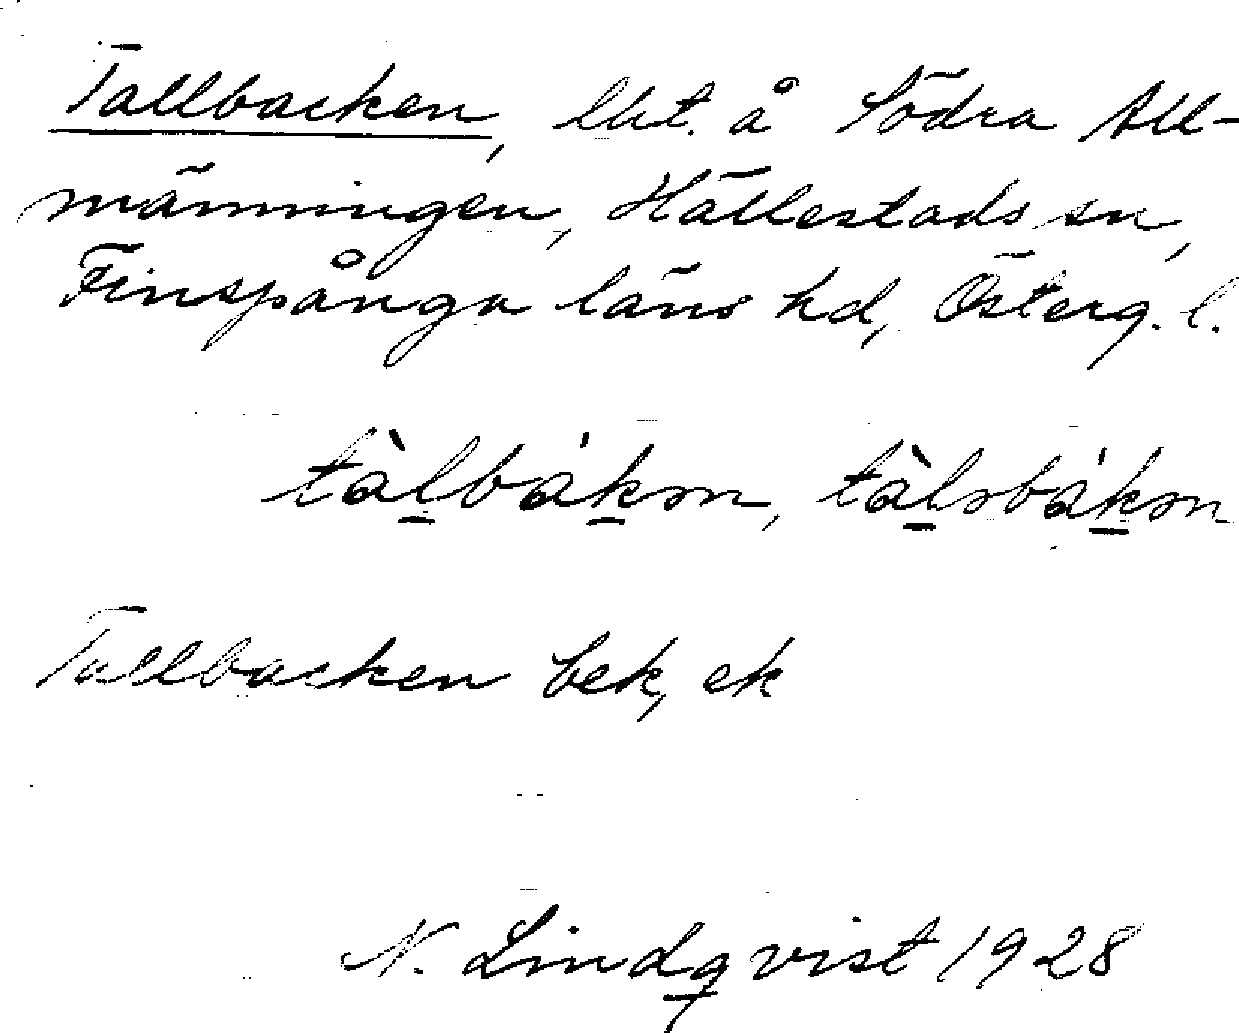 Tallbacken, lht. å Södra All-
männingen, Hällestads sn,
Finspånga läns hd, Österg. l.
tàl̠bák̠ən, tàl̠sbák̠ən
Tallbacken bek, ek
N. Lindqvist 1928